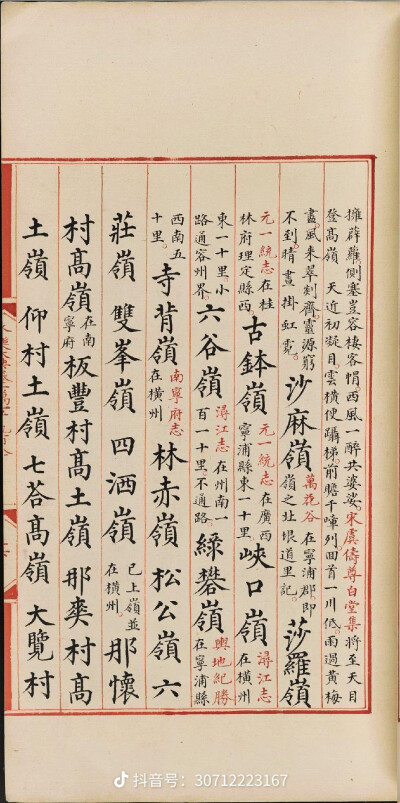 擁薜蘿側塞豈容棲客帽西風一醉共婆娑宋虞儔尊白堂集將至天目
登髙嶺 天近初凝目雲横便躡梯前瞻千嶂列回首一川低雨過黄梅
畫風来翠剡齊靈源窮不到晴晝掛虹霓 沙麻嶺 萬花谷在寧浦郡即嶺之址垠道里記 莎羅嶺
元一統志在桂林府理定縣西 古鉢嶺 元一統志在廣西寧浦縣東一十里 峽口嶺 潯江志在横州
東一十里小路通容州界 六谷嶺 潯江志在州南一百一十里不通路 緑礬嶺 輿地紀勝在寧浦縣
西南五十里 寺背嶺 南寧府志在横州 林赤嶺 松公嶺 六
莊嶺 雙峯嶺 四洒嶺 已上嶺並在横州 那懷
村髙嶺 在南寧府 板豐村髙土嶺 那 村髙
土嶺 仰村土嶺 七荅髙嶺 大覽村
抖音号：30712223167